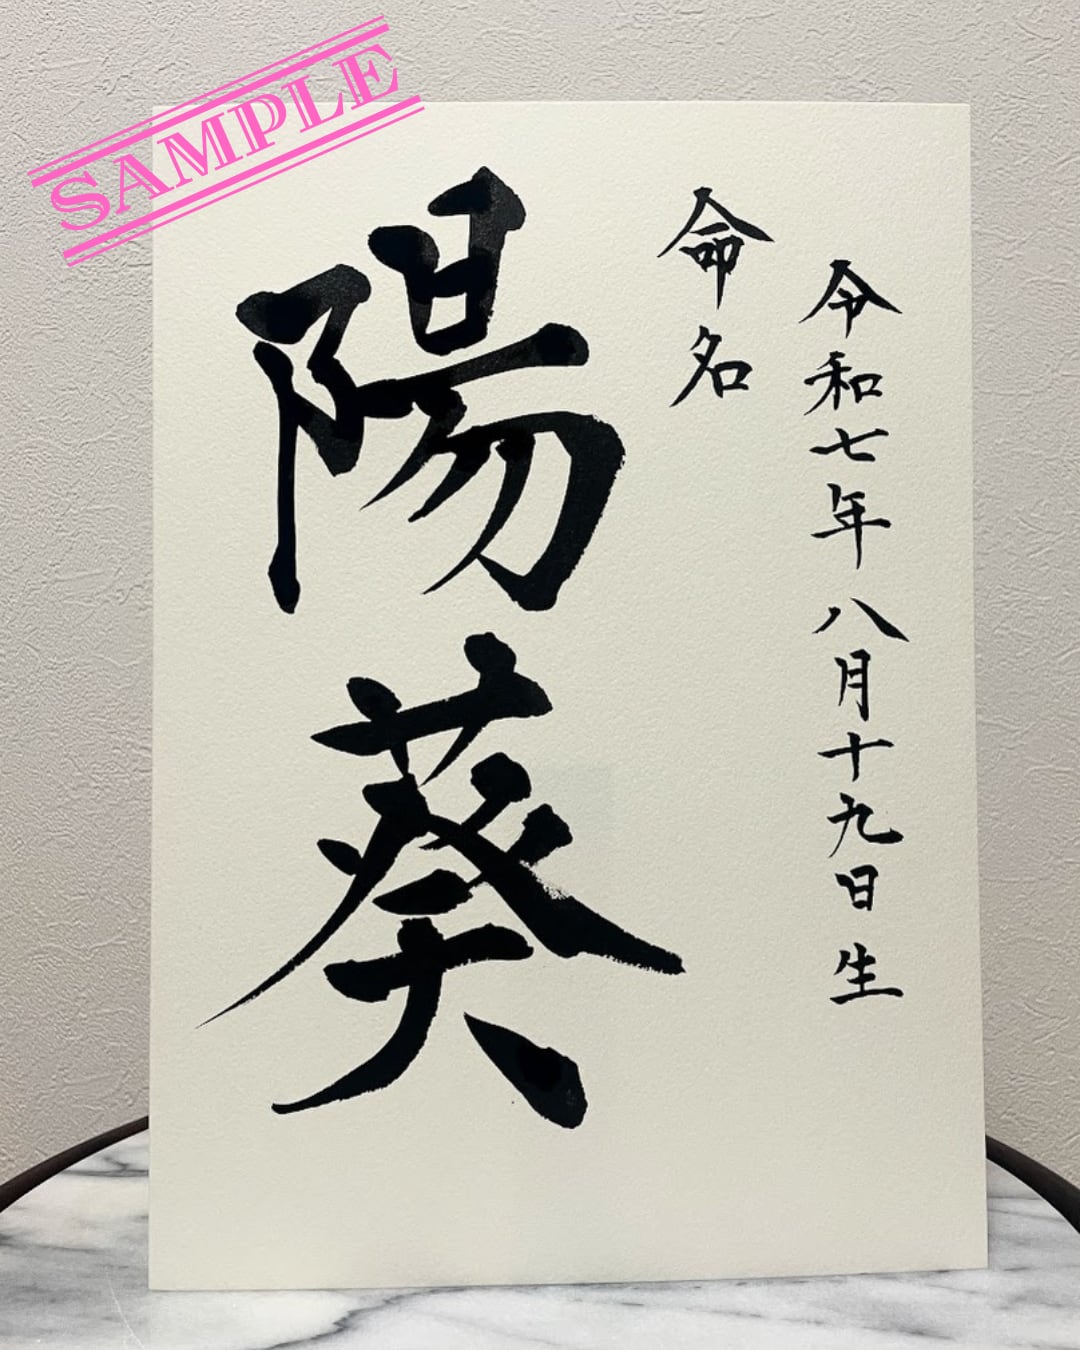 SAMPLE
令和七年八月十九日生
命名
陽葵